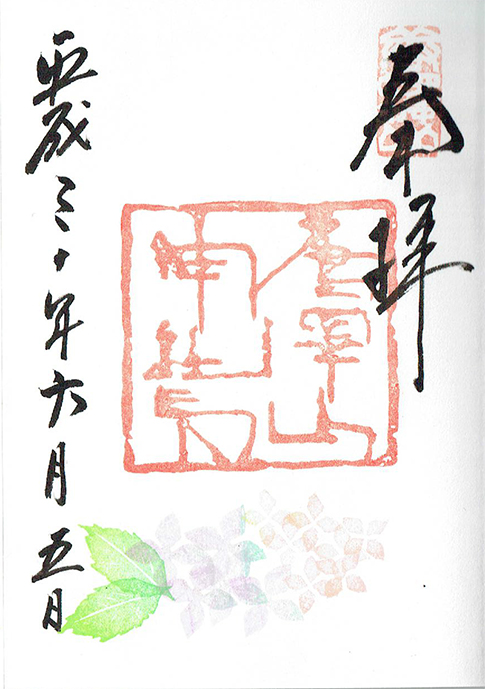 奉拝
唐澤山
神社
平成三十年六月五日